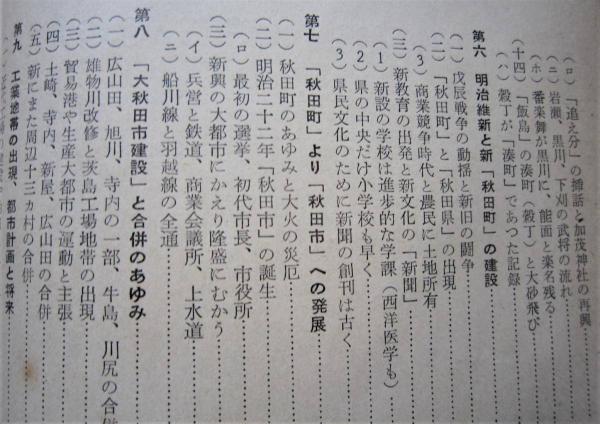 (ロ) 「追え分」の挿話と加茂神社の再興
(ニ) 岩瀬、黒川、下刈の武将の流れ
(ホ) 番楽舞が黒川に、能面と楽名残る
(十四) 「飯島」の湊町(穀丁)と大砂飛び
(ハ) 穀丁が「湊町」であつた記録
第六 明治維新と新「秋田町」の建設
(一) 戊辰戦争の動揺と新旧の闘争
(二) 「秋田町」と「秋田県」の出現
(3) 商業競争時代と農民に土地所有
(三) 新教育の出発と新文化の「新聞」
(1) 新設の学校は進歩的な学課(西洋医学も)
(2) 県の中央だけ小学校も早く
(3) 県民文化のために新聞の創刊は古く
第七 「秋田町」より「秋田市」への発展
(一) 秋田町のあゆみと大火の災厄
(二) 明治二十二年「秋田市」の誕生
(ロ) 最初の選挙、初代市長、市役所
(三) 新興の大都市にかえり隆盛にむかう
(イ) 兵営と鉄道、商業会議所、上水道
(ニ) 船川線と羽越線の全通
第八 「大秋田市建設」と合併のあゆみ
(一) 広山田、旭川、寺内の一部、牛島、川尻の合併
(二) 雄物川改修と茨島工場地帯の出現
(三) 貿易港や生産大都市の運動と主張
(四) 土崎、寺内、新屋、広山田の合併
(五) 新にまた周辺十三ヵ村の合併
第九 工業地帯の出現、都市計画と将来